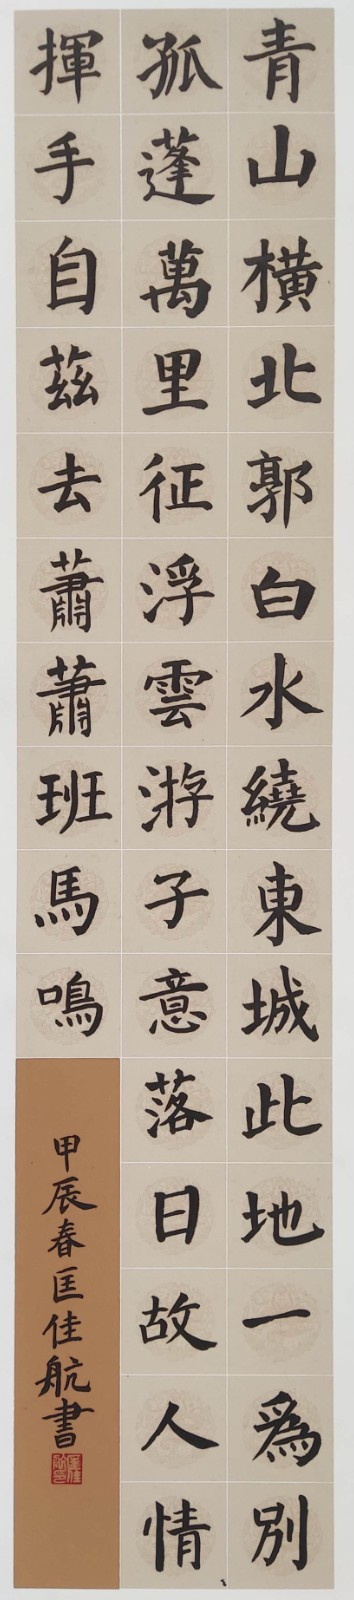 青山橫北郭白水繞東城此地一爲別
孤蓬萬里征浮雲游子意落日故人情
揮手自茲去蕭蕭班馬鳴
甲辰春匡佳航書